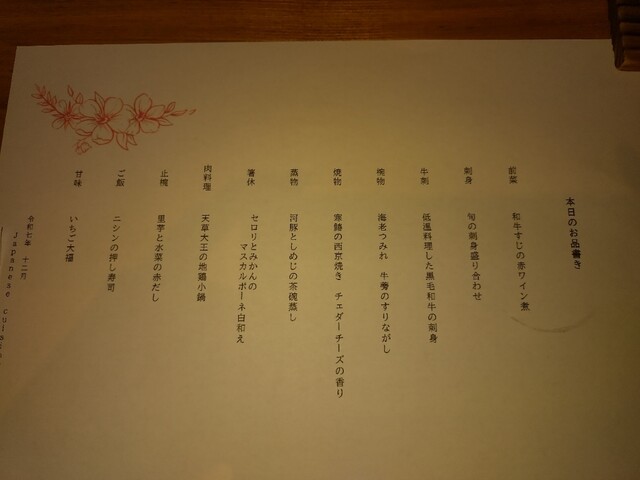 本日のお品書き
前菜　和牛すじの赤ワイン煮
刺身　旬の刺身盛り合わせ
牛刺　低温料理した黒毛和牛の刺身
椀物　海老つみれ　牛蒡のすりながし
焼物　寒鰆の西京焼き　チェダーチーズの香り
蒸物　河豚としめじの茶碗蒸し
箸休　セロリとみかんの
マスカルポーネ白和え
肉料理　天草大王の地鶏小鍋
止椀　里芋と水菜の赤だし
ご飯　ニシンの押し寿司
甘味　いちご大福
令和七年　十二月
Japanese